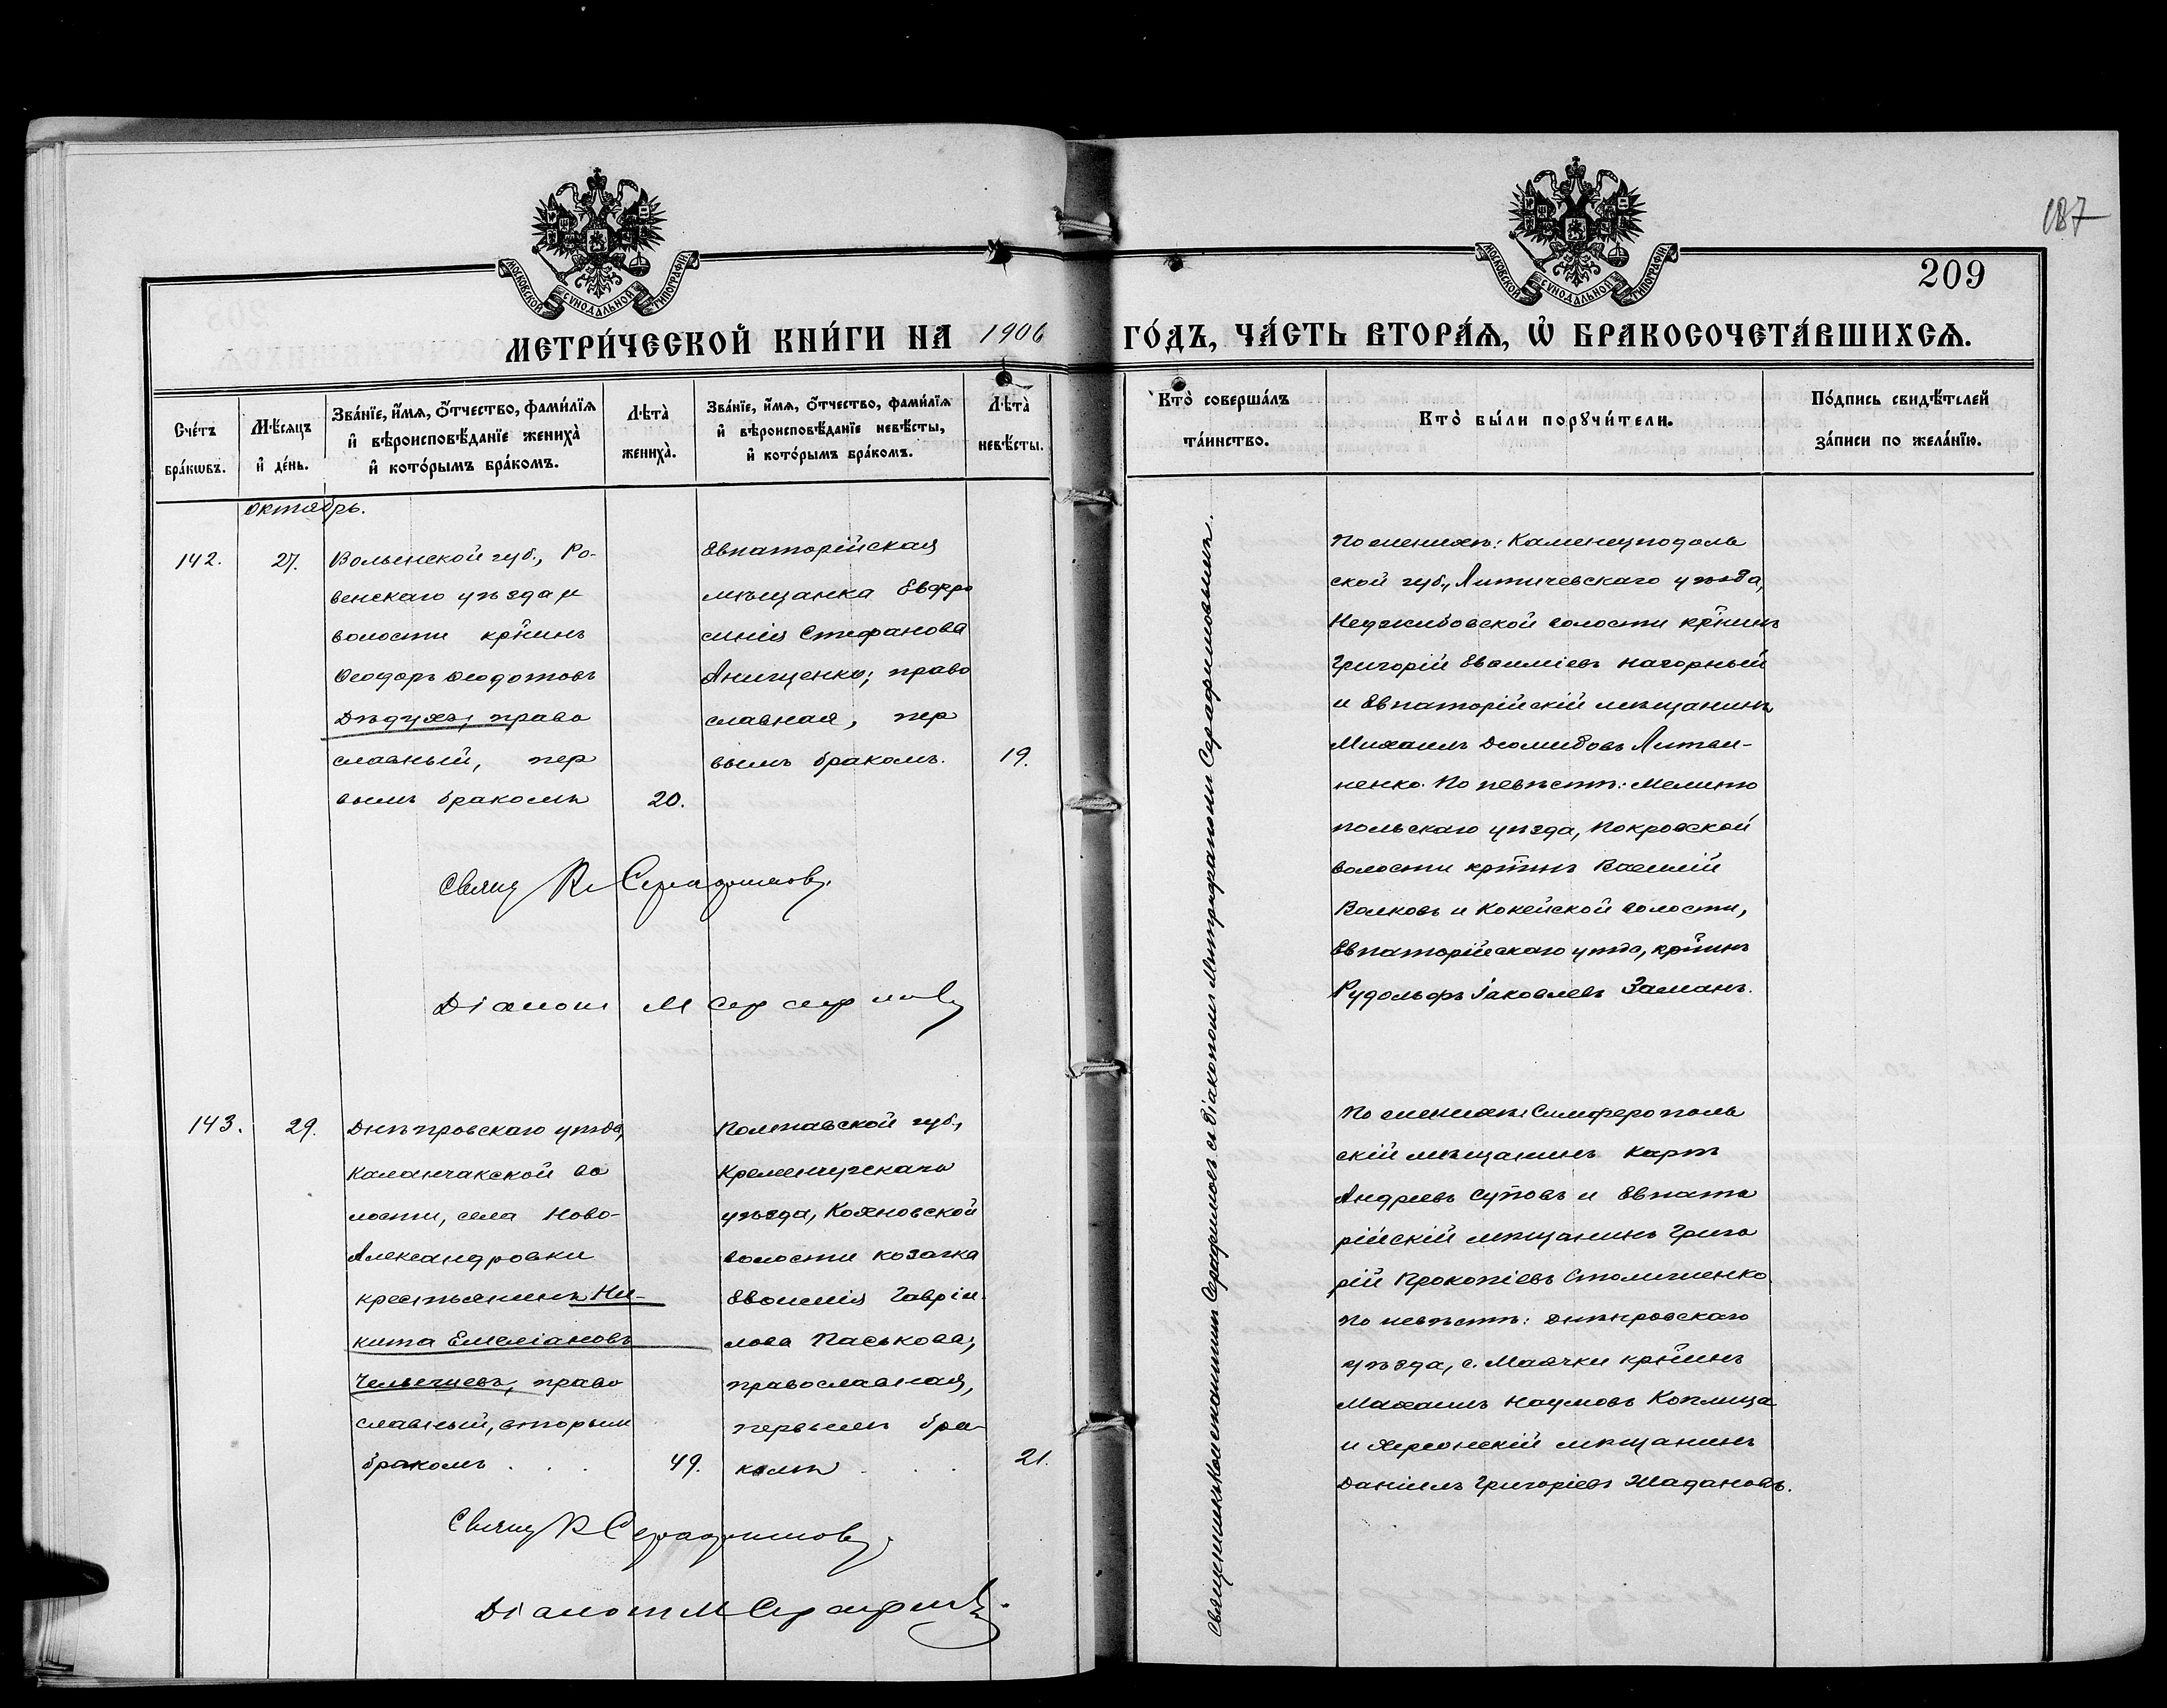 187
209
МОСКОВСКОЙ СУНОДАЛЬНОЙ ТИПОГРАФІИ
МОСКОВСКОЙ СУНОДАЛЬНОЙ ТИПОГРАФІИ
МЕТРИ́ЧЕСКОЙ КНИ́ГИ НА 1906 ГО́ДЪ, ЧА́СТЬ ВТОРА́Ѧ, Ѡ҆ БРАКОСОЧЕТА́ВШИХСѦ.
Сче́тъ бра́кѡвъ.
Мѣ́сѧцъ и҆ де́нь.
Зва́нїе, и҆́мѧ, ѻ҆́тчество, фами́лїѧ и҆ вѣроисповѣ́данїе жениха̀ и҆ кото́рымъ бра́комъ.
Лѣ́та̀ жениха̀.
Зва́нїе, и҆́мѧ, ѻ҆́тчество, фами́лїѧ и҆ вѣроисповѣ́данїе невѣ́сты, и҆ кото́рымъ бра́комъ.
Лѣ́та̀ невѣ́сты.
Кто̀ соверша́лъ та́инство.
Кто̀ бы́ли порꙋчи́тели.
По́дпись свидѣ́телей за́писи по жела́нїю.
Октябрь.
142.
27.
Волынской губ., Ро-
венскаго уѣзда и
волости кр̃нинъ
Ѳеодоръ Ѳеодотовъ
Дѣдухъ, право
славный, пер
вымъ бракомъ
20.
Евпаторійская
мѣщанка Евфро
синія Стефанова
Анищенко; право
славная, пер
вымъ бракомъ.
19.
Священ К Серафимовъ.
Діаконъ М Серафимовъ
Священникъ Константинъ Серафимовъ съ Діакономъ Митрофаномъ Серафимовымъ.
По женихѣ: Каменецподоль
ской губ., Литичевскаго уѣзда,
Меджибовской волости кр̃нинъ
Григорій Евѳиміевъ Нагорный
и Евпаторійскій мѣщанинъ
Михаилъ Діомидовъ Литви-
ненко. По невѣстѣ: Мелито
польскаго уѣзда, Покровской
волости кр̃нинъ Василій
Волковъ и Кокейской волости,
Евпаторійскаго уѣзда, кр̃нинъ
Рудольфъ Іаковлевъ Заманъ.
143.
29.
Днѣпровскаго уѣзда,
Каланчакской во
лости, села Ново-
Александровки
крестьянинъ Ни-
кита Емеліановъ
право
славный, вторым
бракомъ . . .
49.
Полтавской губ.,
Кременчугскаго
уѣзда, Кохновской
волости козачка
Евѳимія Гаврiи
лова Паськова;
православная,
первымъ бра-
комъ . . .
21.
Священ К Серафимовъ.
Діаконъ М Серафимовъ.
По женихѣ: Симферополь
скій мѣщанинъ Карпъ
Андреевъ и Евпато
рійскій мѣщанинъ Григо
рій Прокопіевъ
По невѣстѣ: Днѣпровскаго
уѣзда, с. Маячки кр̃нинъ
Михаилъ Наумовъ Коплица
и Херсонскій мѣщанинъ
Даніилъ Григоріевъ Жадановъ.